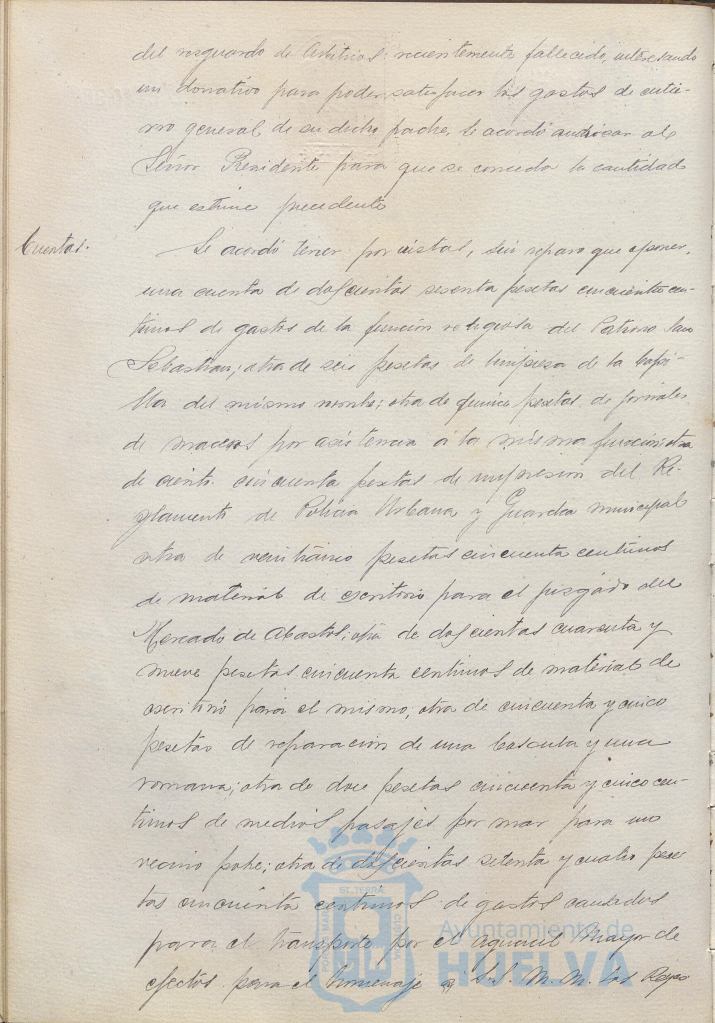 del resguardo de Arbitrios, recientemente fallecido, interesando
un donativo para poder satisfacer los gastos de entie-
rro general de su dicho padre, se acordó autorizar al
Señor Presidente para que se conceda la cantidad
que estime procedente
Cuentas.
Se acordó tener por vistas, sin reparo que oponer,
una cuenta de doscientas sesenta pesetas cincuenta cen-
timos de gastos de la función religiosa del Patrono San
Sebastian; otra de seis pesetas de limpieza de la Capi-
lla del mismo nombre; otra de quince pesetas de jornales
de maceros por asistencia á la misma función; otra
de ciento cincuenta pesetas de impresión del Re-
glamento de Policia Urbana y Guardia municipal
otra de pesetas cincuenta centimos
de material de escritorio para el juzgado del
Mercado de Abastos; otra de doscientas cuarenta y
nueve pesetas cincuenta centimos de material de
escritorio para el mismo; otra de cincuenta y cinco
pesetas de reparación de una bascula y una
romana; otra de doce pesetas cincuenta y cinco cen-
timos de medios pasajes por mar para un
vecino pobre; otra de doscientas setenta y cuatro pese-
tas cincuenta centimos de gastos causados
para el transporte por el aguacil Mayor de
efectos para el homenaje a S.S. M.M. los Reyes
PORTUS MARIS ET TERRAE CUSTODIA
Ayuntamiento de
HUELVA